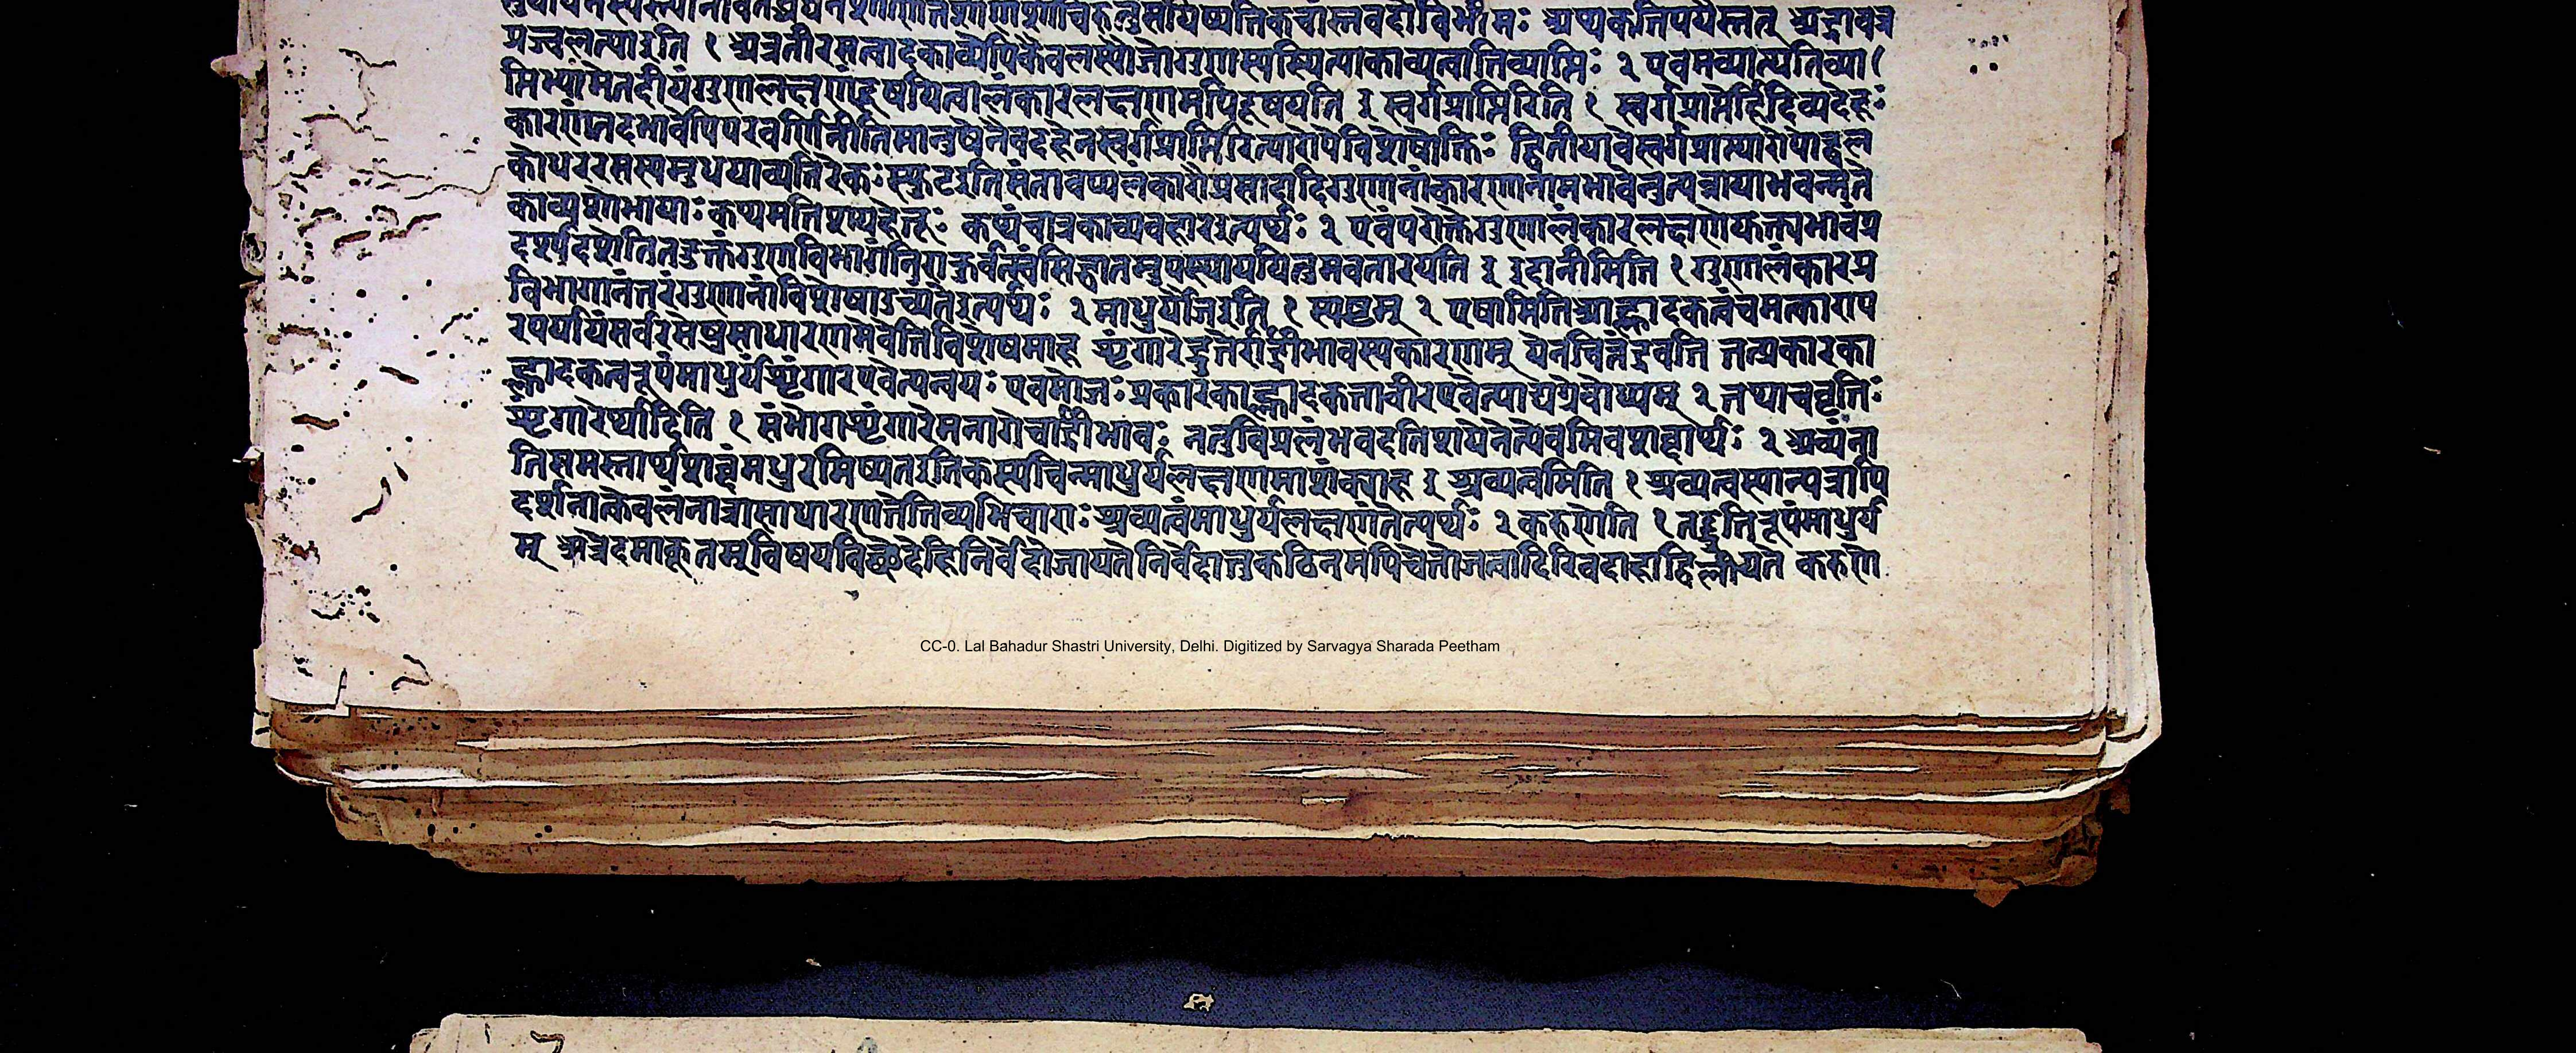 प्रज्वलत्याइति १ अत्रनीरसत्वादकाव्येपिकेवलस्यौजोगुणस्यस्थित्याकाव्यत्वातिव्याप्तिः २ एवमव्याप्त्यतिव्या(
प्तिभ्यांमेतदीयंगुणलक्षणंदूषयित्वालंकारलक्षणमपिदूषयति इ स्वर्गप्राप्तिरिति १ स्वर्गप्राप्तेर्हिदिव्यदेहः
कारणंतदभावेपिवरवर्णिनीतिमानुषेनैवदेहेनस्वर्गप्राप्तिरित्यारोपेविशेषोक्तिः द्वितीयार्धेस्वर्गप्राप्त्यारोपाद्बल
कोधररसस्यसुधयाव्यतिरेकः स्फुटइतिसंतावप्यलंकारौप्रसादादिगुणानांकारणानामभावेनुत्पन्नायाभवन्मते
काव्यशोभायाः कथमतिशयहेतू: कथंचात्रकाव्यवहारइत्यर्थः २ एवंपरोक्तगुणालंकारलक्षणेयुक्त्यभावंप्र
दर्श्यदशेतितदुक्तंगुणविभागंनिराकुर्वन्स्वंसिद्धांतमुपस्थापयितुमवतारयति इ इदानीमिति १ गुणालंकारप्र
विभागानंतरंगुणानांविशेषाउच्यंतेइत्यर्थः २ माधुर्योजइति १ स्पष्टम् २ एषामितिआह्लादकत्वंचमत्कारापं
रपर्यायंसर्वरसेषुसाधारणमेवेतिविशेषमाह शृंगारेद्रुतेर्गाद्रीभावस्यकारणम् येनचित्तंद्रवति तत्प्रकारका
ह्लादकत्वरूपंमाधुर्यंशृंगारएवेत्यन्वयः एवमोजःप्रकारकाह्लादकत्तावीरएवेत्याद्यग्रेबोध्यम् २ तथाचवृत्तिः
शृंगारेर्थादिति १ संभोगशृंगारेमनागेवार्द्रीभावः नतुविप्रलंभवदतिशयेनेत्येवमिवशब्दार्थः २ श्रव्यंना
तिसमस्तार्थशब्दंमधुरमिष्यतइतिकस्यचिन्माधुर्यलक्षणमाशंक्याह इ श्रव्यत्वमिति १ श्रव्यत्वस्यान्यत्रापि
दर्शनात्केवलंनात्रासाधारणतेतिव्यभिचारा:श्रव्यत्वंमाधुर्यलक्षणंनेत्यर्थः २ करुणेति १ तद्द्रुतिरूपंमाधुर्य
म् अत्रेदमाकूतम् विषयविच्छेदेहिनिर्वेदोजायतेनिर्वेदात्तुकठिनमपिचेतोजत्वादिरिवदाहाद्विलीयते करुणे
CC-0. Lal Bahadur Shastri University, Delhi. Digitized by Sarvagya Sharada Peetham